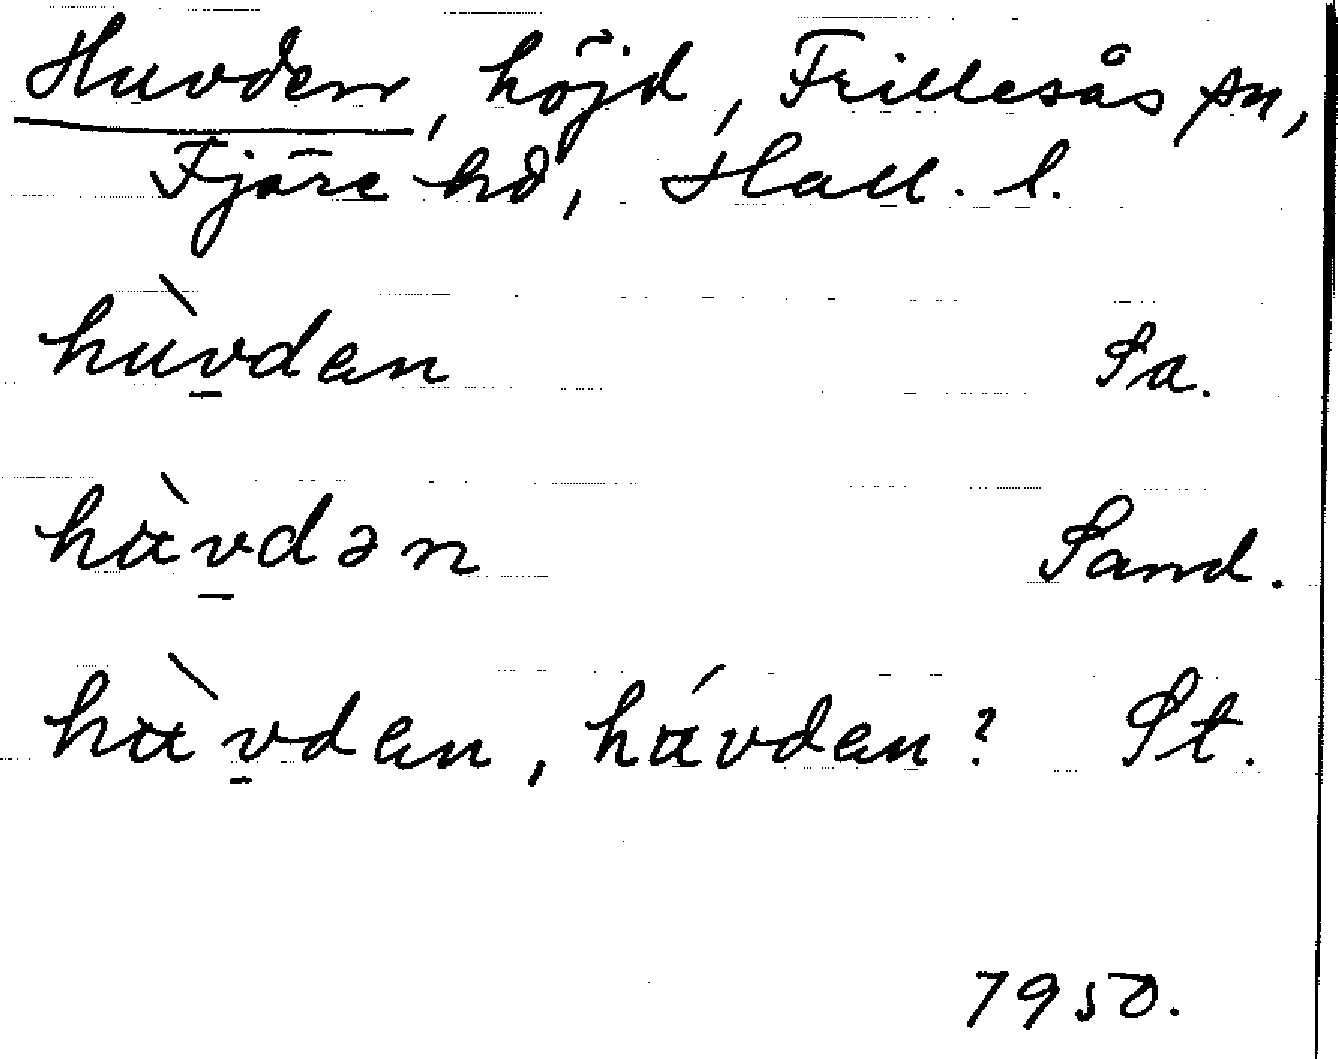 Huvden, höjd, Frillesås sn,
Fjäre hd, Hall. l.
hùv̱dan Sa.
hùv̱dən Sand.
hùv̱dan, húvdan? St.
1950.